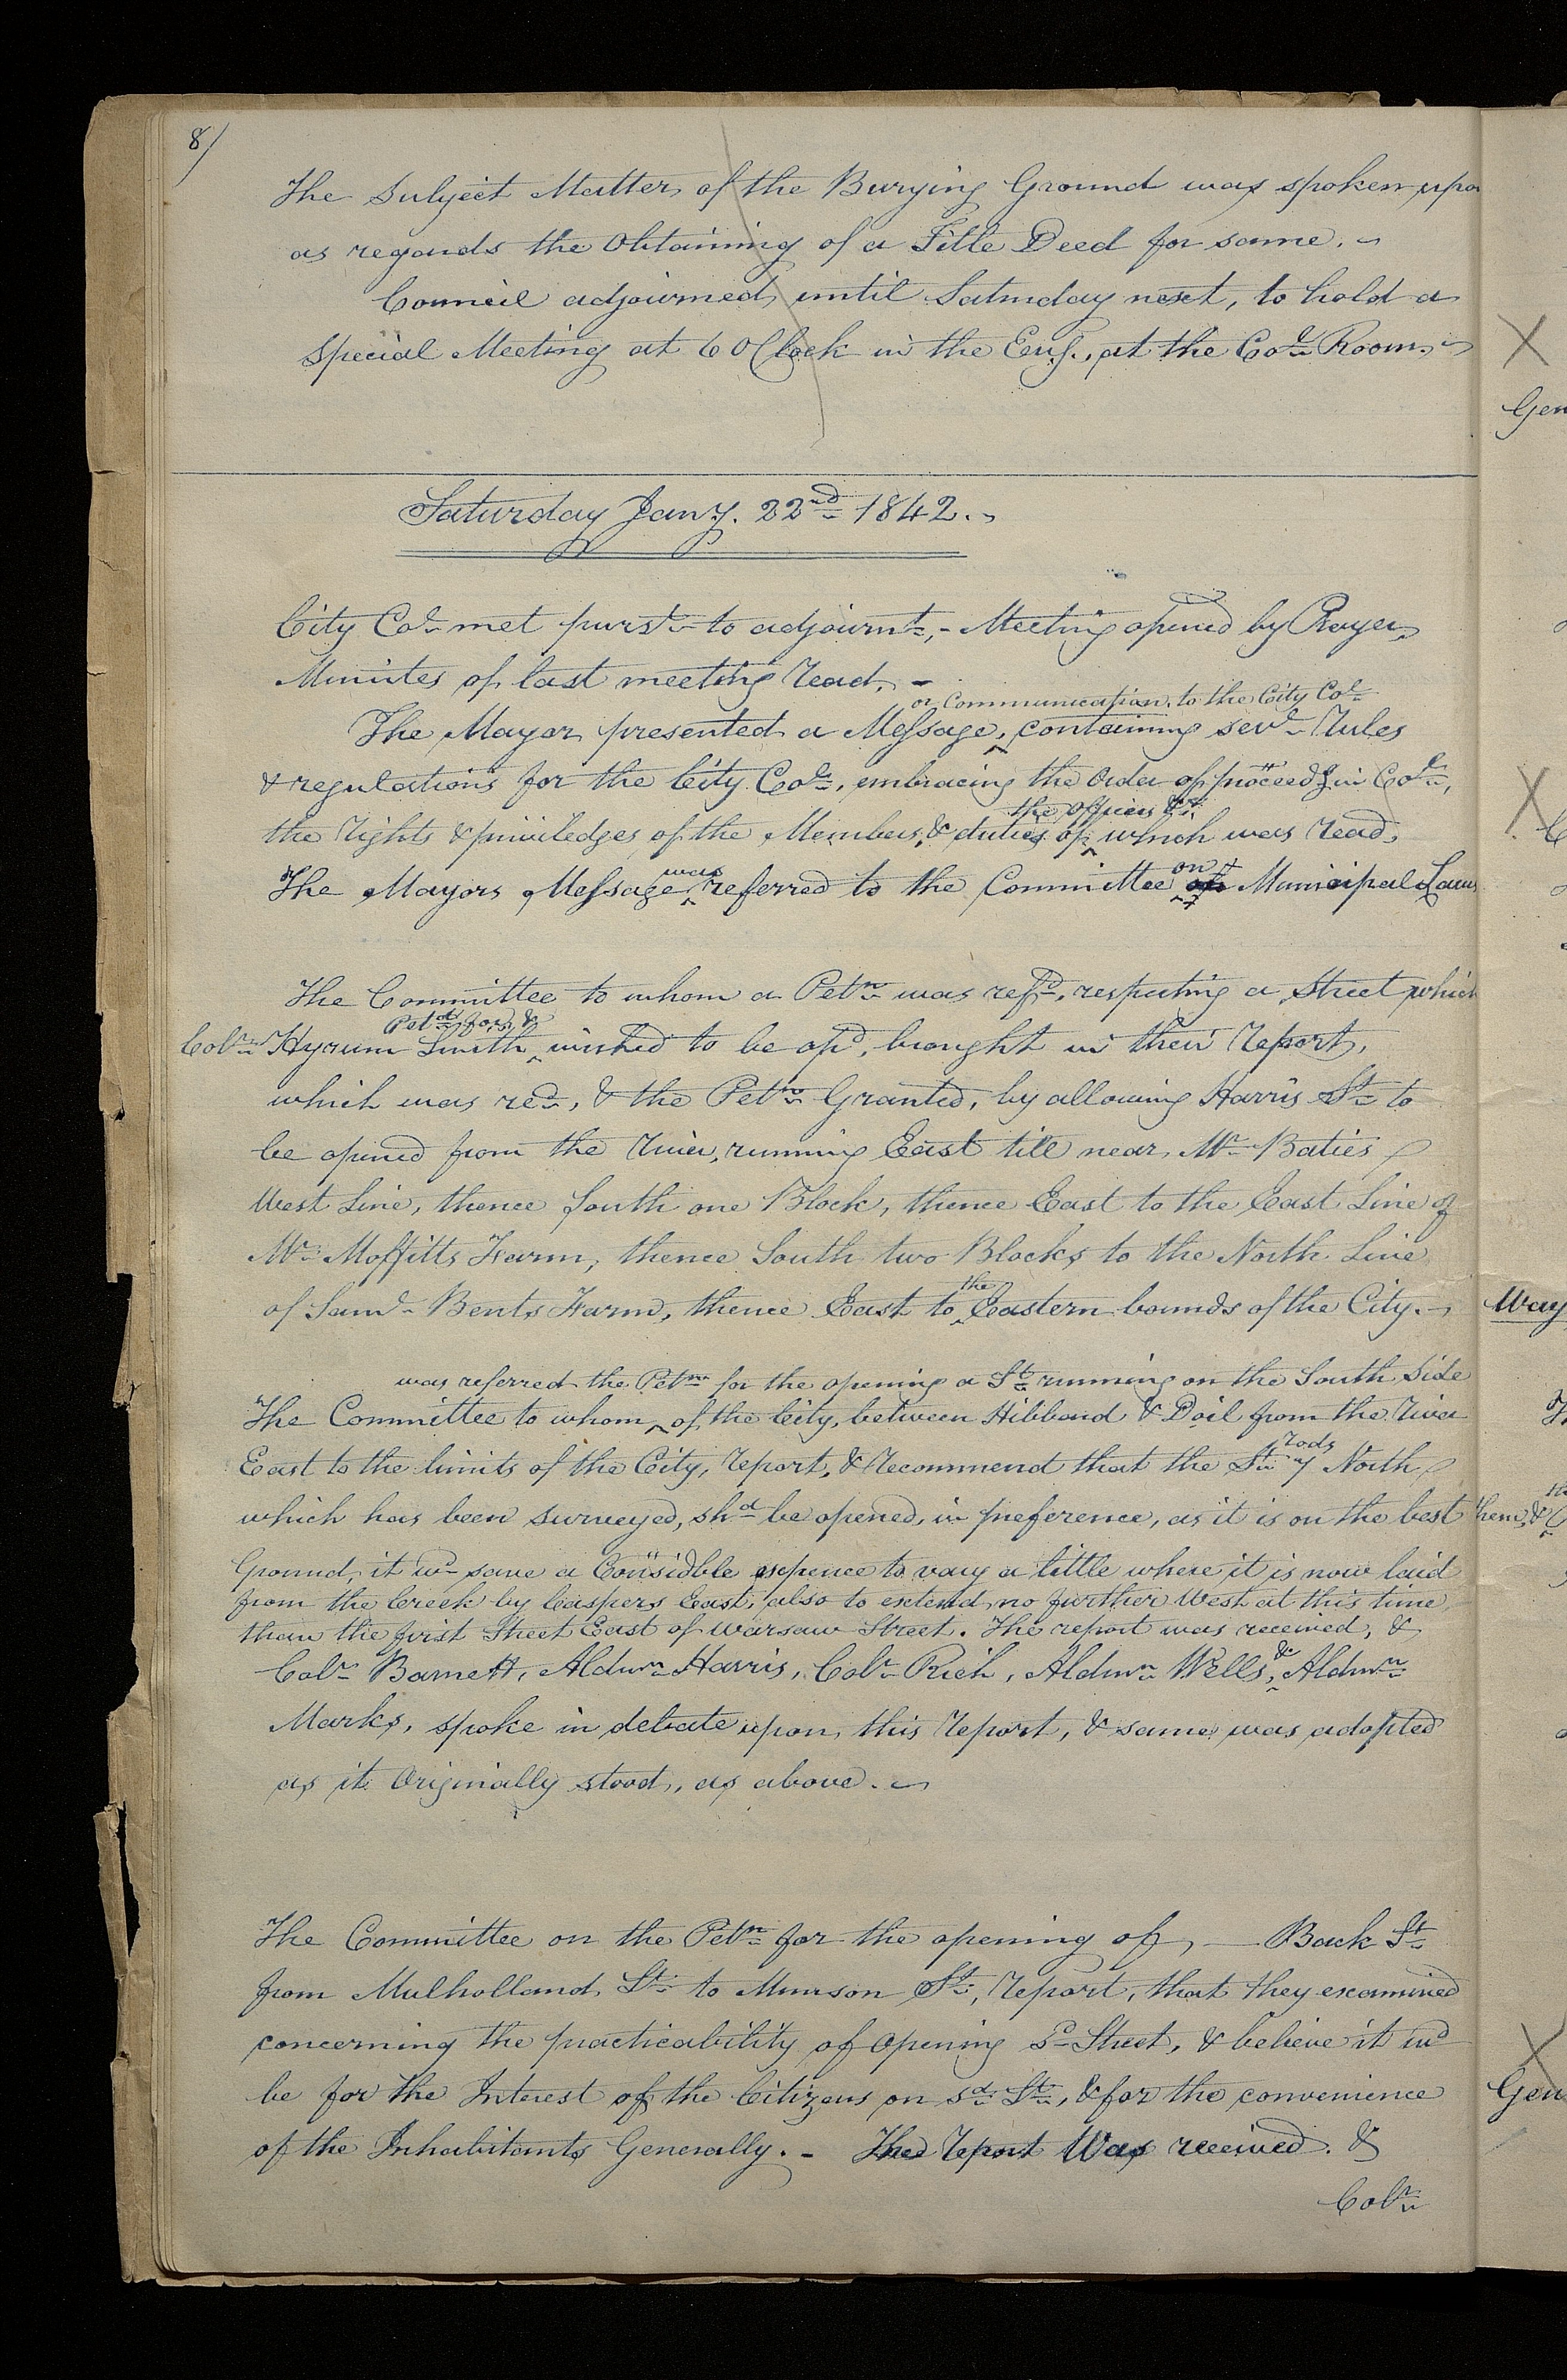 8/
The Subject Matter of the Burying Ground was spoken upo
as regards the Obtaining of a Title Deed for same.
Council adjourned until Saturday next, to hold a
special Meeting at 6 OClock in the Eng., at the Col. Room.
X
Gen
Saturday Jany. 22nd 1842.
City Col. met purst. to adjournt., - Meeting opened by Prayer,
Minutes of last meeting read. -
or Communication, to the City Col.
The Mayor presented a Message, ^ containing sevl. Rules
& regulations for the City Col., embracing the Order of proceedgs. in Col.,
the officers &c.
the rights & priviledges of the Members, & duties of ^ which was read,
was on
The Mayors Message ^ referred to the Committee of ^ Municipal Laws
X
The Committee to whom a Petn. was refd., respecting a Street which
Petd. for, &
Colr. Hyrum Smith ^ wished to be opd, brought in their report,
which was recd., & the Petn. Granted, by allowing Harris St. to
be opened from the river, running East till near Mr. Baties
West Line, thence South one Block, thence East to the East Line of
Mr. Moffitts Farm, thence South two Blocks to the North Line
the
of Saml. Bents Farm, thence East to ^ Eastern bounds of the City.
Way
was referred the Petn. for the opening a St. running on the South Side
The Committee to whom ^ of the City, between Hibbard & Doil from the river
rods
East to the limits of the City, report, & recommend that the St. 7 North
which has been surveyed, shd. be opened, in preference, as it is on the best
Ground, it wd. save a Considble expence to vary a little where it is now laid
from the Creek by Caspers East, also to extend no further West at this time,
than the first Street East of Warsaw Street. The report was received, &
&
Colr. Barnett, Aldmn. Harris, Colr. Rich, Aldmn. Wells, ^ Aldmn.
Marks, spoke in debate upon this report, & same was adopted
as it Originally stood, as above.
The Committee on the Petn. for the opening of, — Back St.
from Mulholland St. to Munson St., report, that they examined
concerning the practicability of Opening Sd. Street, & believe it wd
be for the Interest of the Citizens on sd. St., & for the convenience
of the Inhabitants Generally. - The report Was received. &
X
Gen
Colr.